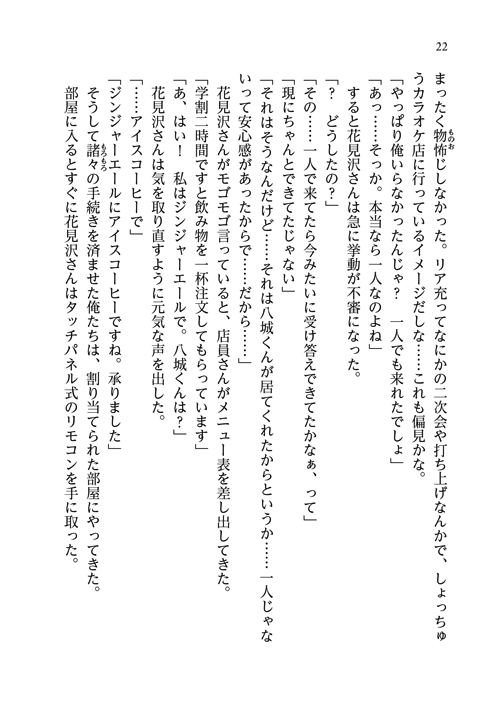 22
まったく物怖じしなかった。リア充ってなにかの二次会や打ち上げなんかで、しょっちゅ
うカラオケ店に行っているイメージだしな……これも偏見かな。
「やっぱり俺いらなかったんじゃ？　一人でも来れたでしょ」
「あっ……そっか。本当なら一人なのよね」
すると花見沢さんは急に挙動が不審になった。
「？　どうしたの？」
「その……一人で来てたら今みたいに受け答えできてたかなぁ、って」
「現にちゃんとできてたじゃない」
「それはそうなんだけど……それは八城くんが居てくれたからというか……一人じゃな
いって安心感があったからで……だから……」
花見沢さんがモゴモゴ言っていると、店員さんがメニュー表を差し出してきた。
「学割二時間ですと飲み物を一杯注文してもらっています」
「あ、はい！　私はジンジャーエールで。八城くんは？」
花見沢さんは気を取り直すように元気な声を出した。
「……アイスコーヒーで」
「ジンジャーエールにアイスコーヒーですね。承りました」
そうして諸々の手続きを済ませた俺たちは、割り当てられた部屋にやってきた。
部屋に入るとすぐに花見沢さんはタッチパネル式のリモコンを手に取った。
ものお
もろもろ